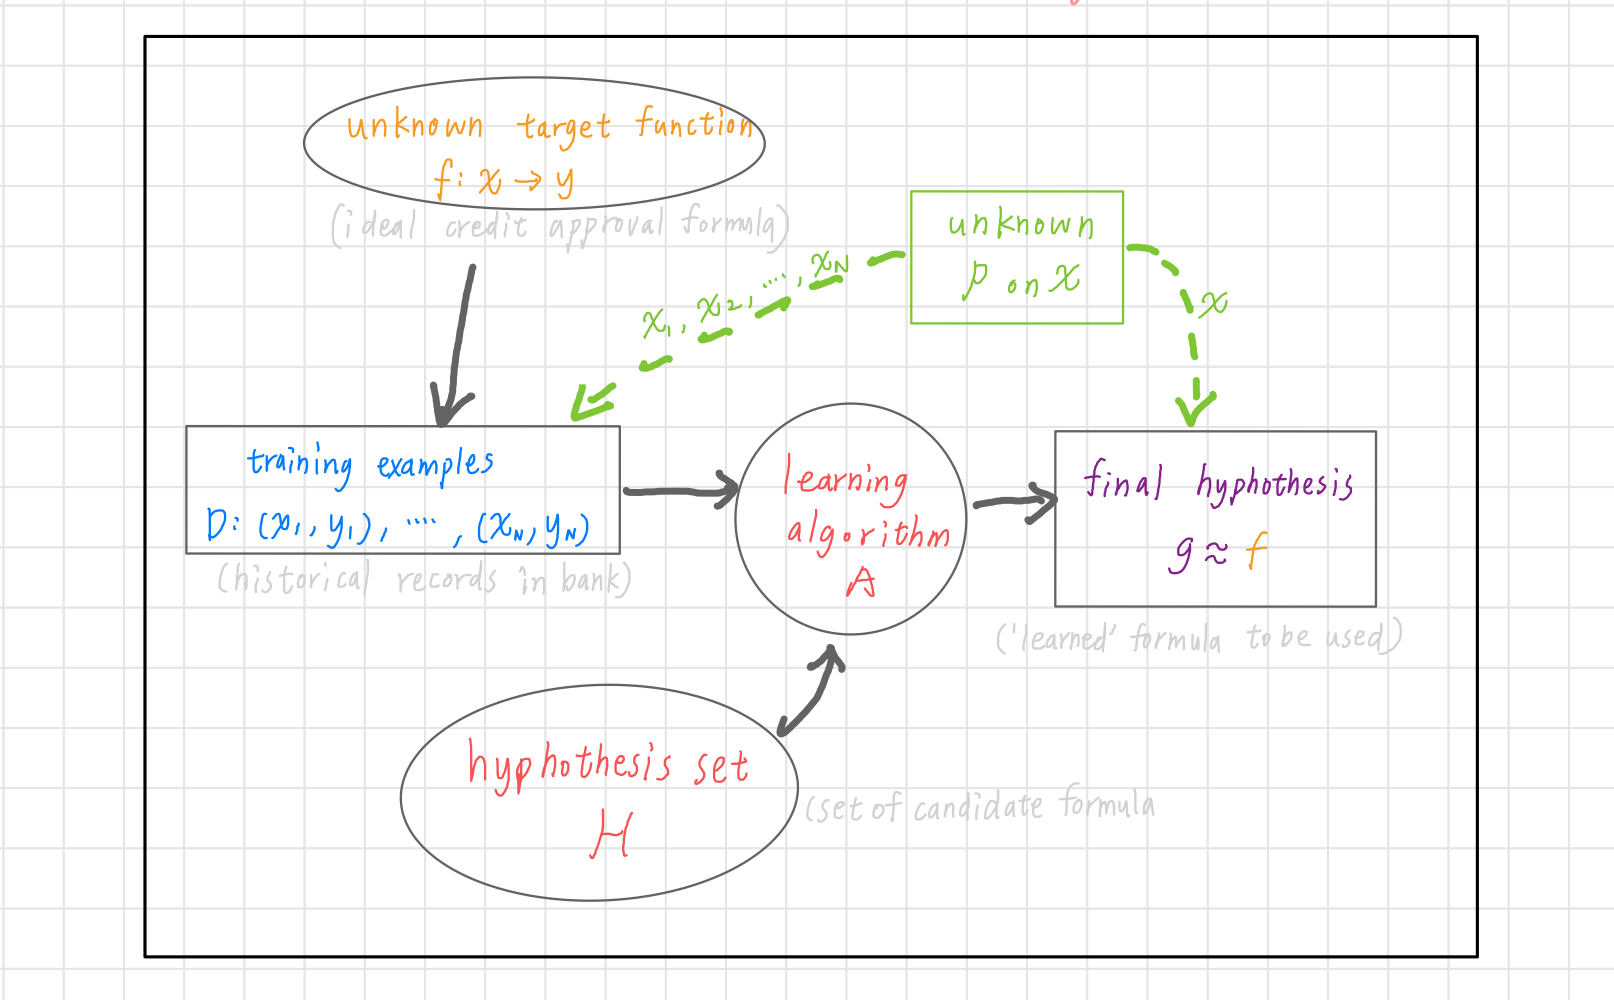 unknown target function
f: x → y
(ideal credit approval formula)
unknown
P on X
x₁, x₂, ..., x_N
x
training examples
D: (x₁, y₁), ...., (x_N, y_N)
(historical records in bank)
learning
algorithm
A
final hyphothesis
g ≈ f
('learned' formula to be used)
hyphothesis set
H
(set of candidate formula